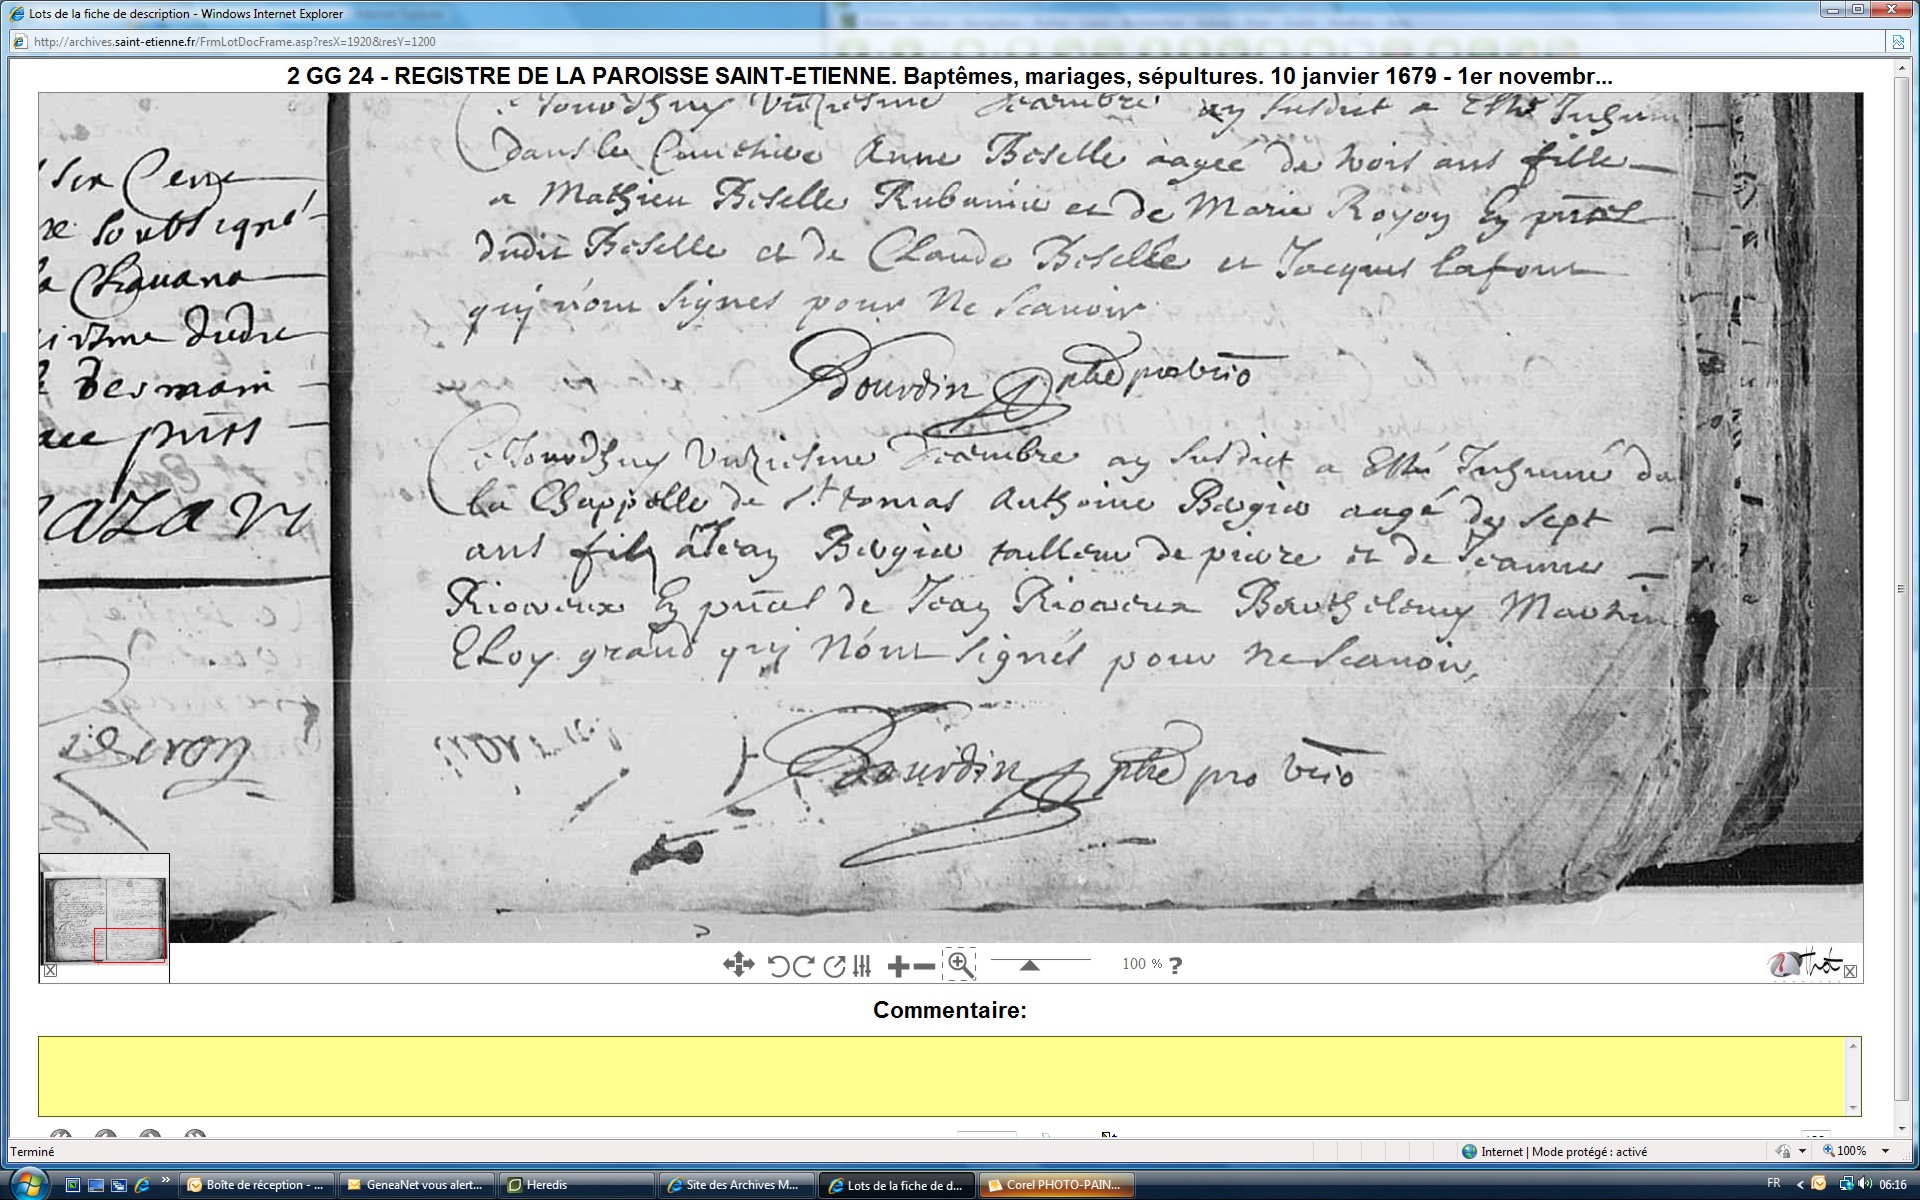 Lots de la fiche de description - Windows Internet Explorer
http://archives.saint-etienne.fr/FrmLotDocFrame.asp?resX=1920&resY=1200
2 GG 24 - REGISTRE DE LA PAROISSE SAINT-ETIENNE. Baptêmes, mariages, sépultures. 10 janvier 1679 - 1er novembr...
soubsigné
la Chavana
dudre
Germain
prnts
Ce Jourdhuy Unziesme decembre ay susdict a Esté Inhumé
dans le Cimetiere Anne Biselle aagée de trois ans fille
a Mathieu Biselle Rubanié et de Marie Royon En prnces
dudit Biselle et de Claude Biselle et Jacques lafont
quy n'ont signes pour Ne scavoir
Bourdin ptre pro vrio
Ce Jourdhuy Unziesme decembre ay susdict a Esté Inhumé da
la Chappelle de st tomas Anthoine Bergier aagé de sept
ans fils a Jean Bergier tailleur de pierre et de Jeanne
Rioureux En prnces de Jean Rioureux Barthelemy Martin
Eloy grand quy N'ont signés pour ne scavoir,
Bourdin ptre pro vrio
100 % ?
Commentaire:
Terminé
Internet | Mode protégé : activé
100%
Boîte de réception - ...
GeneaNet vous alert...
Heredis
Site des Archives M...
Lots de la fiche de d...
Corel PHOTO-PAIN...
FR
06:16